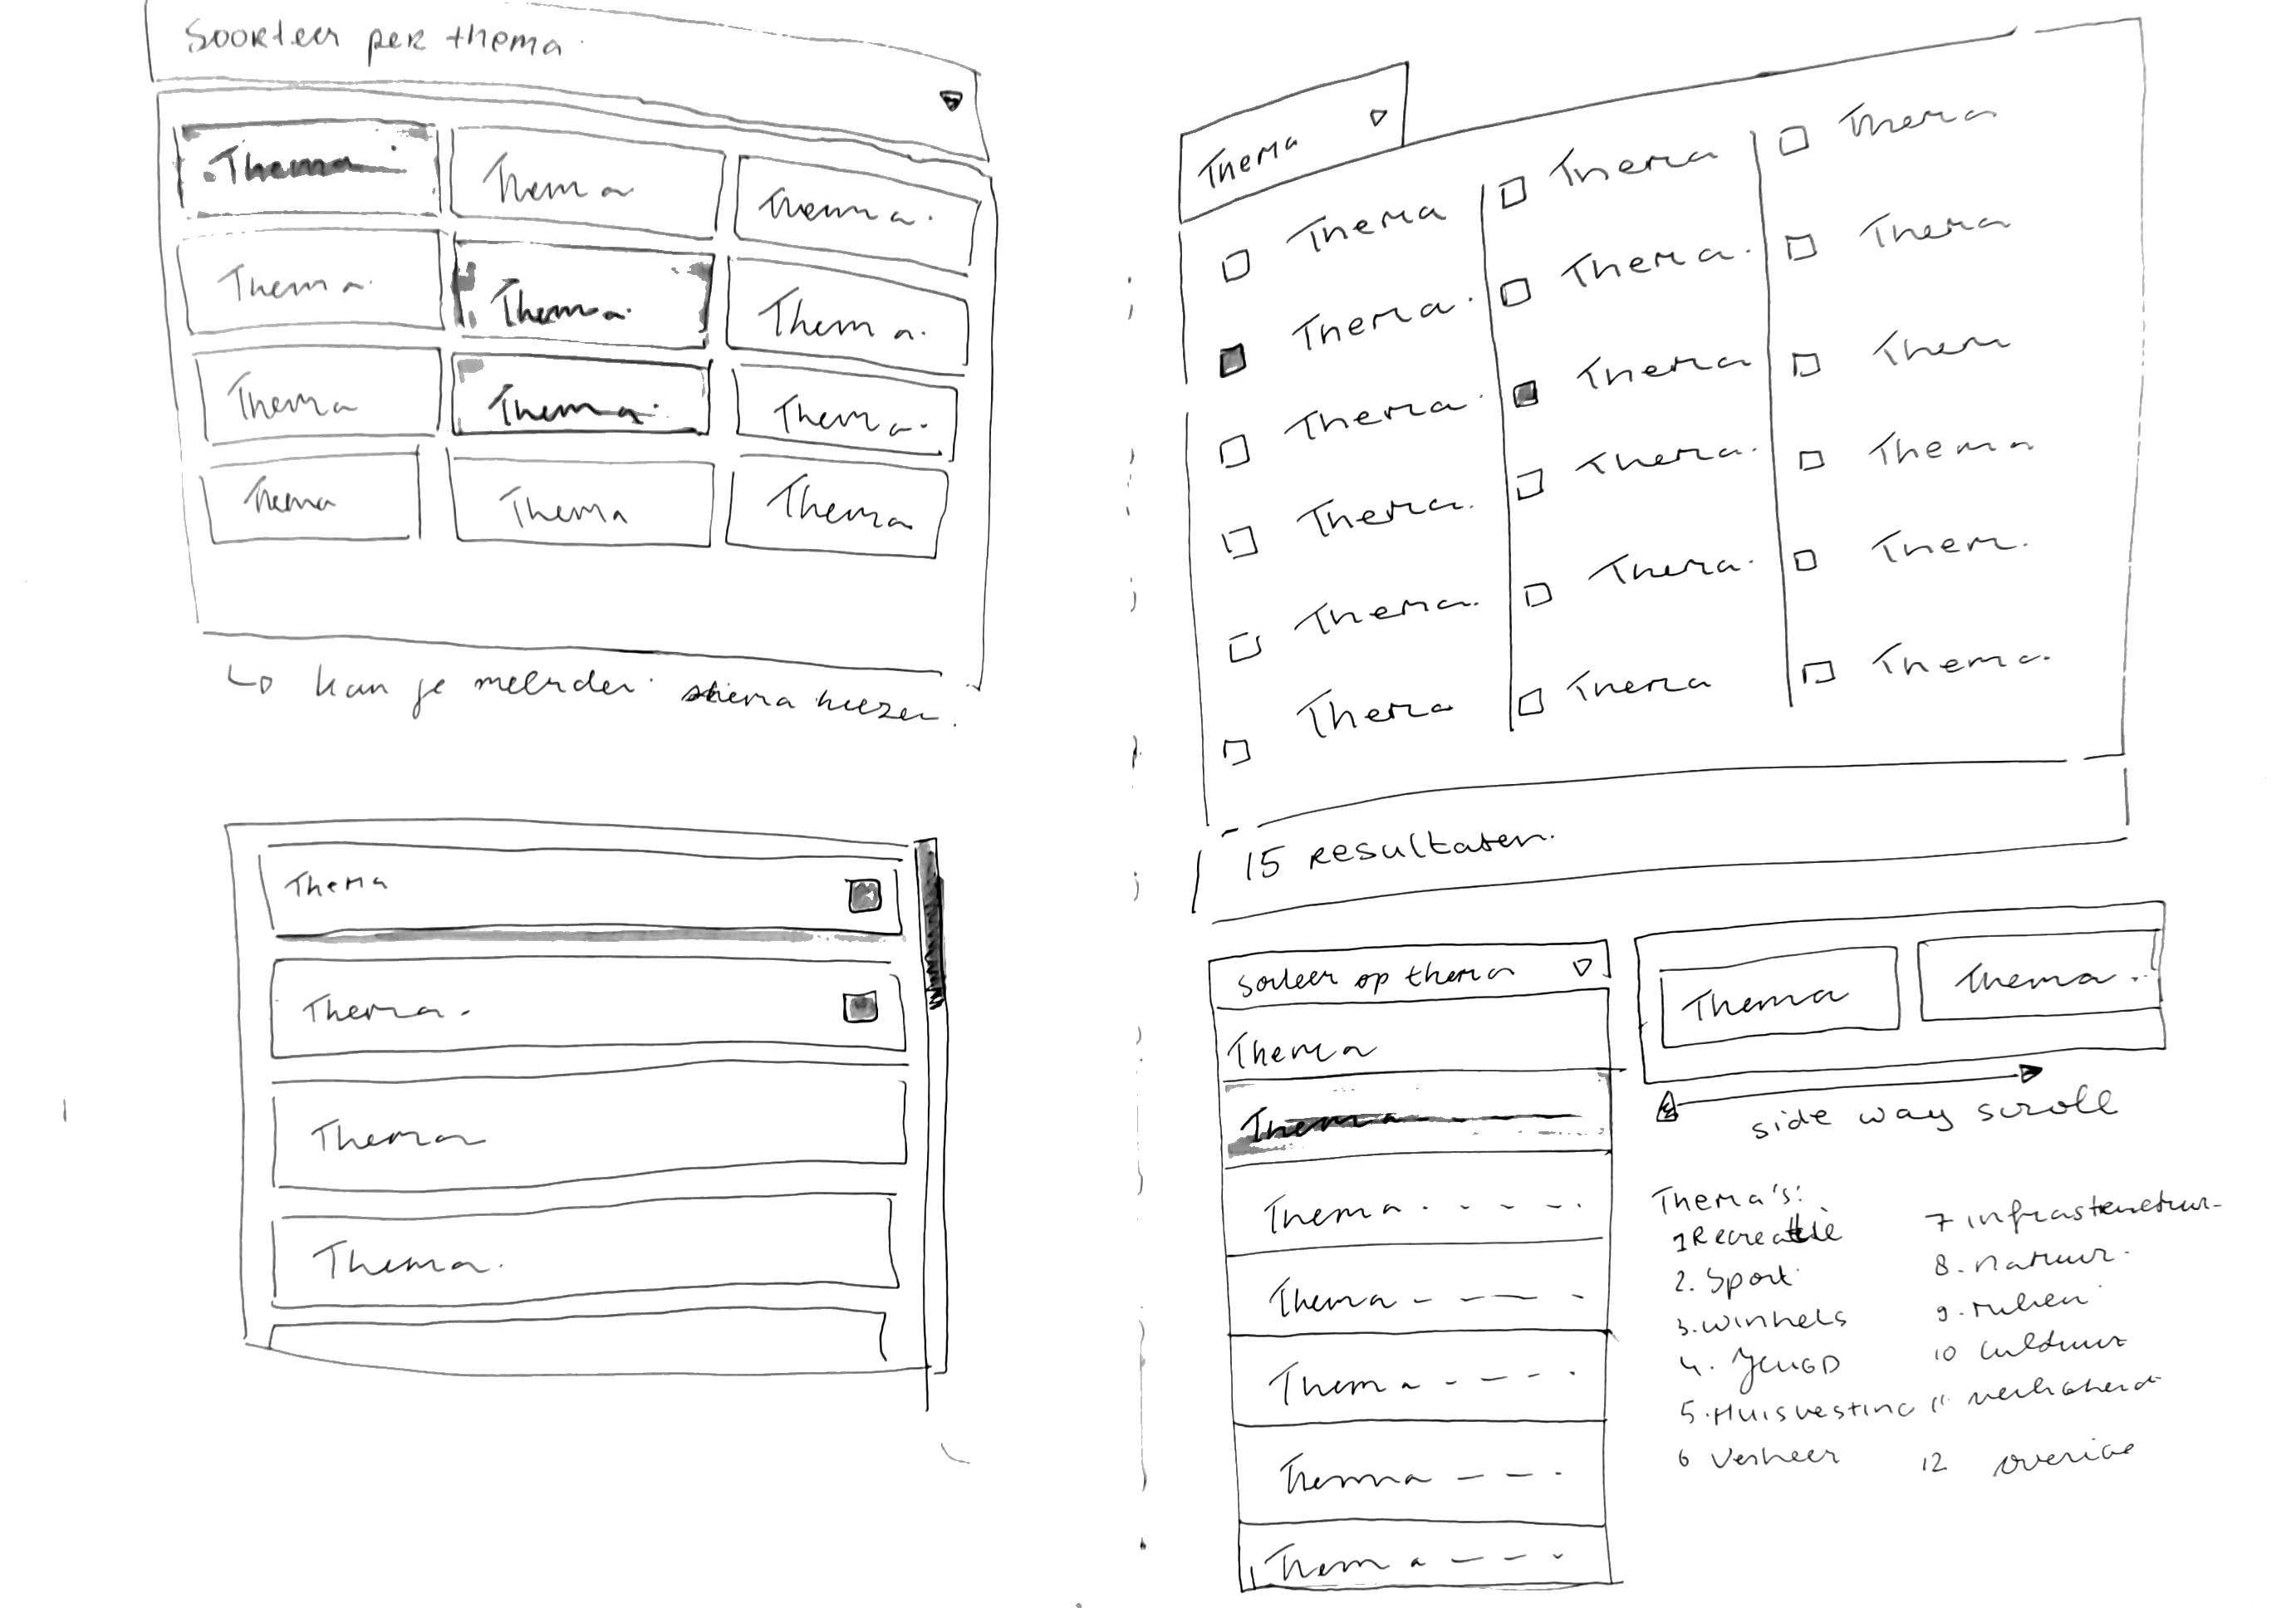 Soorteer per thema.
Thema
Thema
Thema.
Thema.
Thema.
Thema.
Thema
Thema.
Thema.
Thema
Thema
Thema
kan je meerder thema kiezen.
Thema
Thema.
Thema
Thema.
Thema
Thema
Thema
Thema
Thema.
Thema.
Thema
Thema.
Thema
Them
Thema.
Thema.
Thema
Thema.
Thema.
Them.
Thema
Thema
Thema.
15 resultaten.
sorteer op thema
Thema
Thema
Thema
Thema
Thema
Thema
Thema
Thema
Thema
side way scroll
Thema's:
1 Recreatie
2. Sport
3. winkels
4. Jeugd
5. Huisvesting
6 Verkeer
7 infrastructuur
8. natuur.
10 cultuur
12 overige